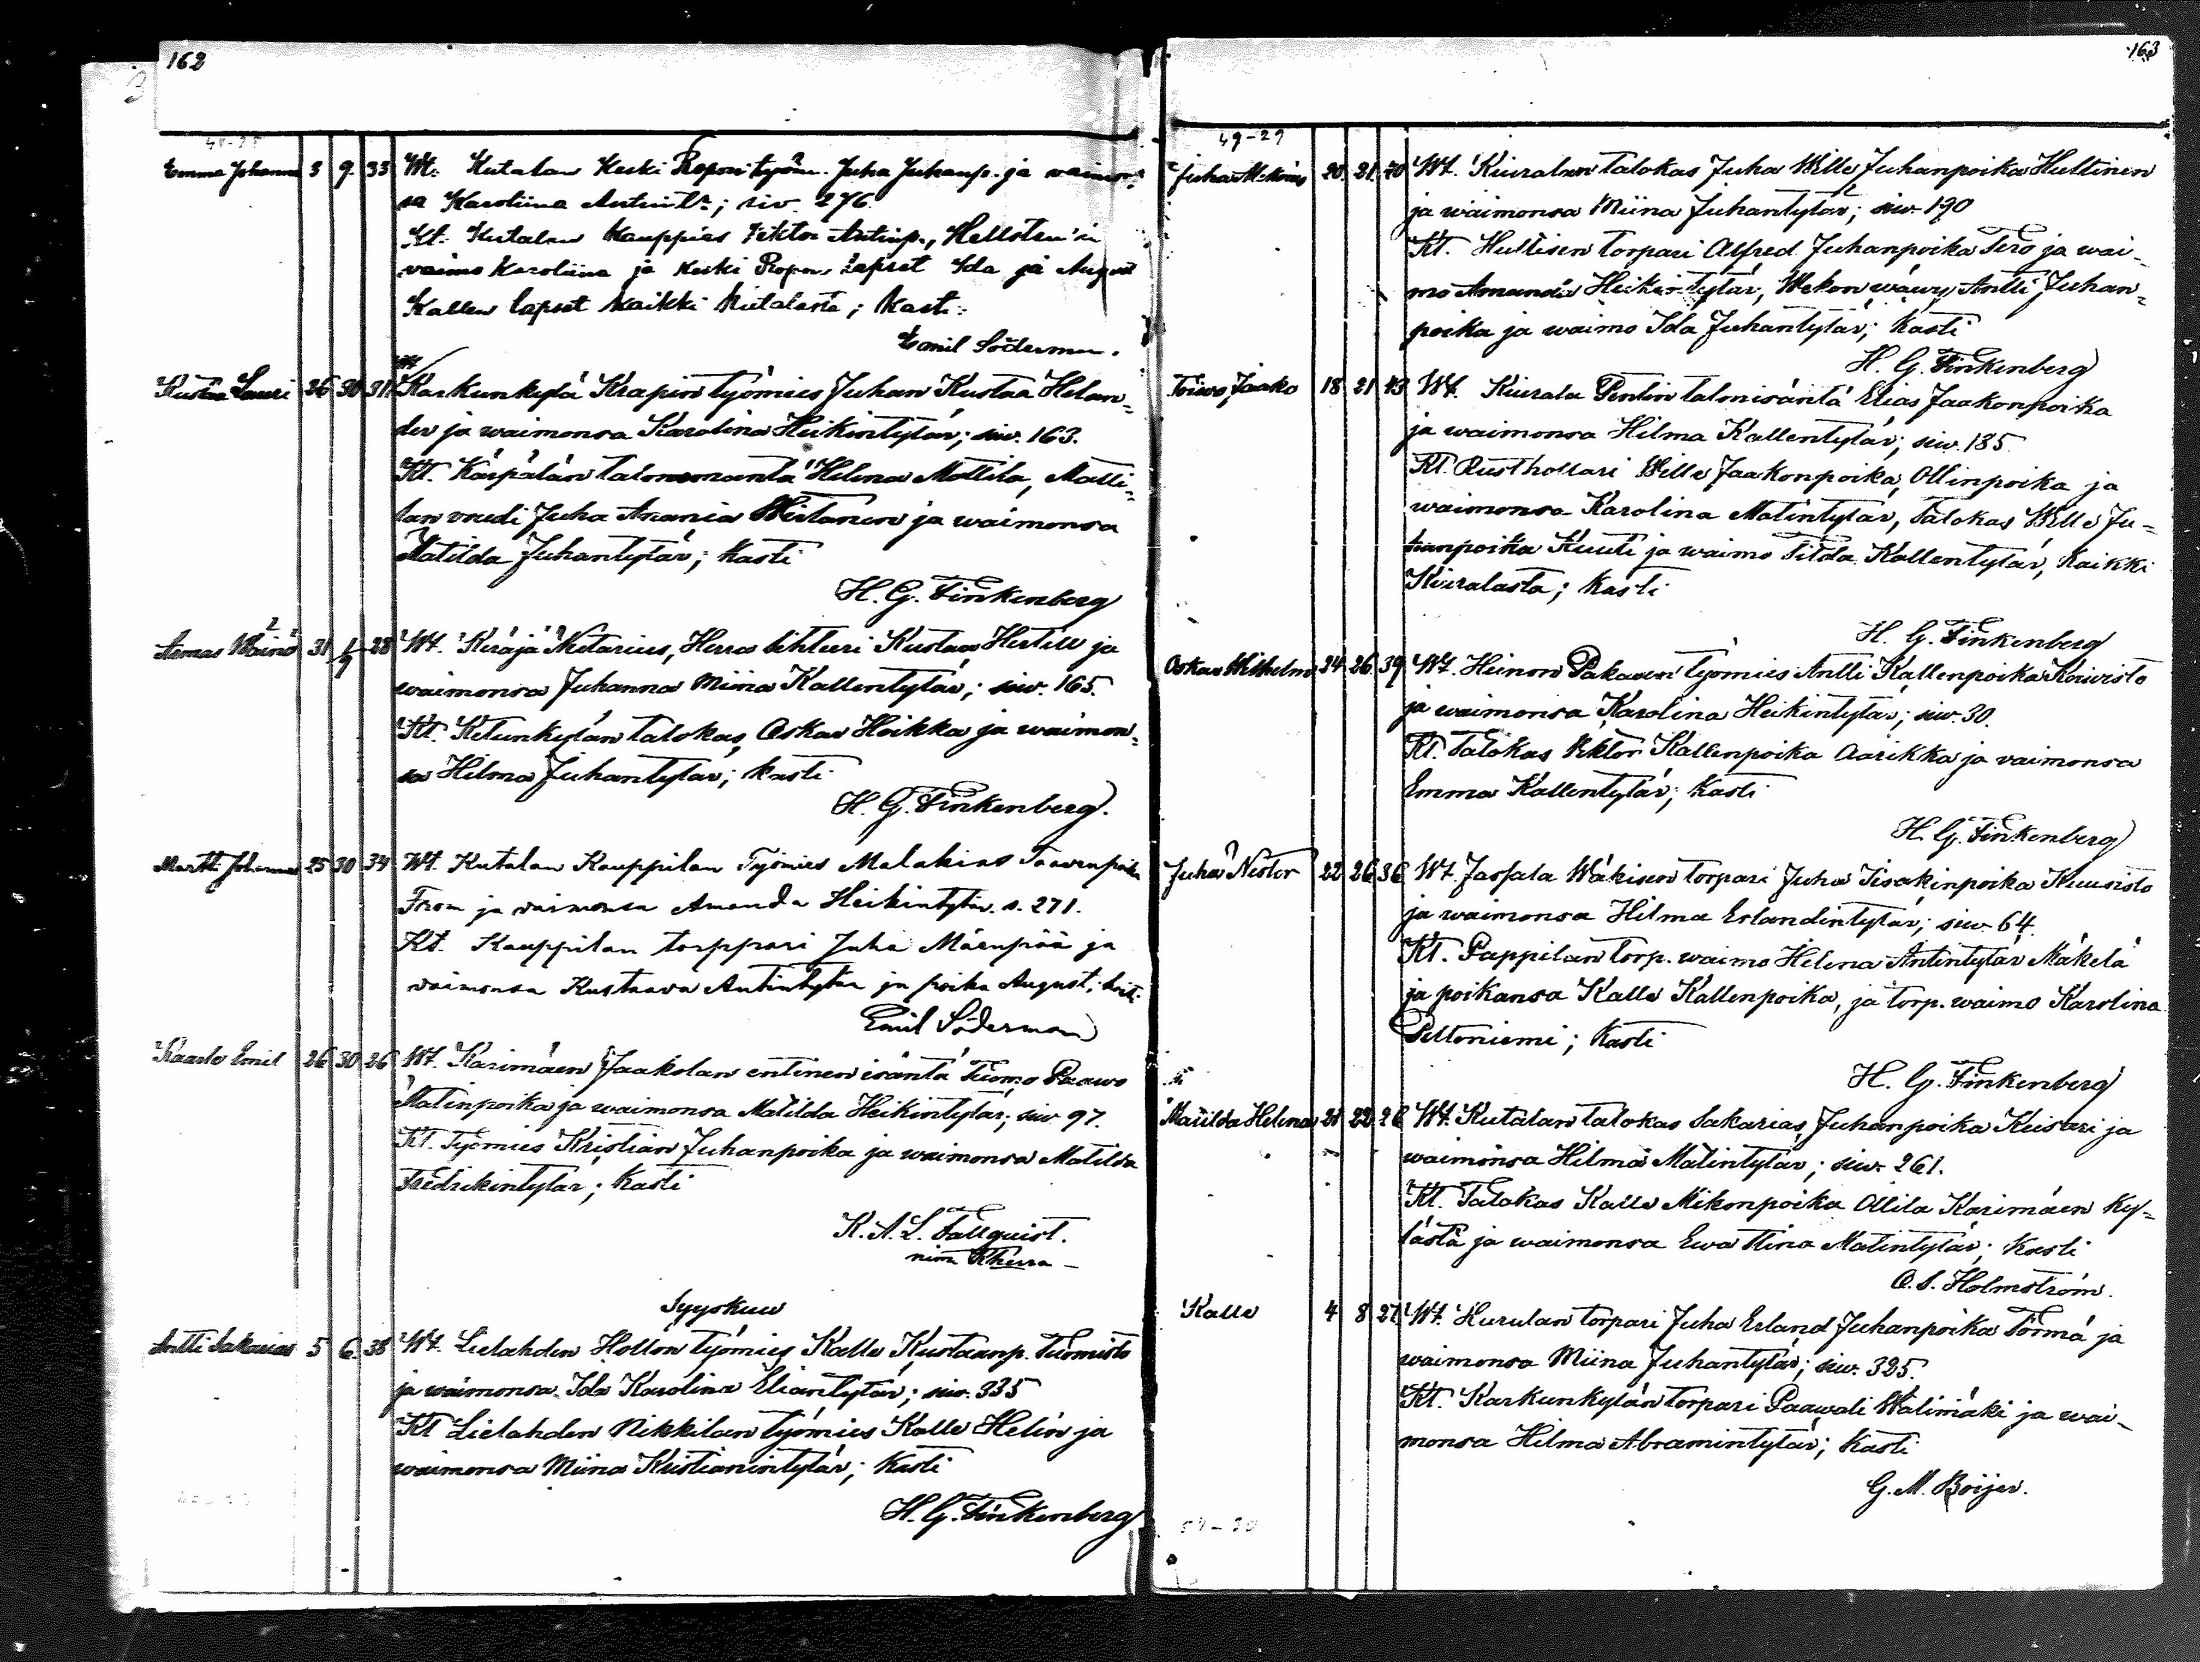 162
Emma Johanna 3 9 33 Wt. Kutalan Keski Propon työm. Juha Juhanp. ja vaimon-
sa Karoliina Antint.; siv. 276.
Kt. Kutalan Kauppias Viktor Antinp., Hellsten'in
vaimo Karoliina ja Keski Propon lapset Ida ja August
Kallen lapset kaikki Kutalasta; Kast.
Emil Söderman.
Kustaa Lauri 26 30 31 Wt. Karkunkylä Krapin työmies Juhan Kustaa Helan-
der ja waimonsa Karolina Heikintytär; siw. 163.
Kt. Kärpälän talonemäntä Helena Mattila, Matti-
lan vuedi Juha Anania Wirtanen ja waimonsa
Matilda Juhantytär; Kasti
H. G. Finkenberg
Armas Wäinö 31 1/9 28 Wt. Käräjä Notarius, Herras sihteeri Kustaa Hertell ja
waimonsa Juhanna Miina Kallentytär; siw. 165.
Kt. Ketunkylän talokas, Oskar Hoikka ja waimon-
sa Hilma Juhantytär; Kasti
H. G. Finkenberg.
Martti Johannes 25 30 34 Wt. Kutalan Kauppilan Työmies Malakias Taavenpoika
From ja vaimonsa Amanda Heikintytär. s. 271.
Kt. Kauppilan torppari Juha Mäenpää ja
vaimonsa Kustaava Antintytär ja poika August; kast.
Emil Söderman
Kaarlo Emil 26 30 26 Wt. Karimäen Jaakolan entinen isäntä Tuomo Paawo
Matinpoika ja waimonsa Matilda Heikintytär; siw 97.
Kt. Työmies Kristian Juhanpoika ja waimonsa Matilda
Fredrikintytär; Kasti
K. A. L. Fallquist.
Syyskuu
Antti Sakarias 5 6 38 Wt. Lielahden Hollon työmies Kalle Kustaanp. Tuomisto
ja waimonsa Ida Karolina Eliantytär; siw. 335
Kt Lielahden Nikkilan työmies Kalle Helin ja
waimonsa Miina Kristianintytär; Kasti
H. G. Finkenberg
163
49-29
Juha M. 20 21 40 Wt. Kiuralan talokas Juha Wille Juhanpoika Hultinen
ja waimonsa Miina Juhantytär; siw. 190
Kt. Hultisen torpari Alfred Juhanpoika Tero ja wai-
mo Amanda Heikintytär, Wekon wäwy Antti Juhan-
poika ja waimo Ida Juhantytär; Kasti
H. G. Finkenberg
Toiwo Jaako 18 21 43 Wt. Kiurala Pentin talonisäntä Elias Jaakonpoika
ja waimonsa Hilma Kallentytär; siw. 185
Kt. Rusthollari Wille Jaakonpoika, Ollinpoika ja
waimonsa Karolina Matintytär, Talokas Wille Ju-
hanpoika Kuuti ja waimo Tilda Kallentytär, kaikki
Kiuralasta; Kasti
H. G. Finkenberg
Oskar Wilhelm 24 26 39 Wt. Heinon Pakasen työmies Antti Kallenpoika Koiwisto
ja waimonsa Karolina Heikintytär; siw. 30.
Kt. Talokas Viktor Kallenpoika Aarikka ja vaimonsa
Emma Kallentytär; Kasti
H. G. Finkenberg
Juha Nestor 22 26 36 Wt. Jassala Wäkisen torpari Juha Iisakinpoika Kuusisto
ja waimonsa Hilma Erlandintytär; siw. 64.
Kt. Pappilan torp. waimo Helena Antintytär Mäkelä
ja poikansa Kalle Kallenpoika, ja torp. waimo Karolina
Peltoniemi; Kasti
H. G. Finkenberg
Matilda Helena 21 22 26 Wt. Kutalan talokas Sakarias Juhanpoika Keisari ja
waimonsa Hilma Matintytär; siw. 261.
Kt. Talokas Kalle Mikonpoika Ollila Karimäen ky-
lästä ja waimonsa Ewa Stina Matintytär; Kasti
O. S. Holmström.
Kalle 4 8 27 Wt. Hurulan torpari Juha Erland Juhanpoika Törmä ja
waimonsa Miina Juhantytär; siw. 325.
Kt. Karkunkylän torpari Paawali Wälimäki ja wai-
monsa Hilma Abramintytär; Kasti
G. M. Boijer.